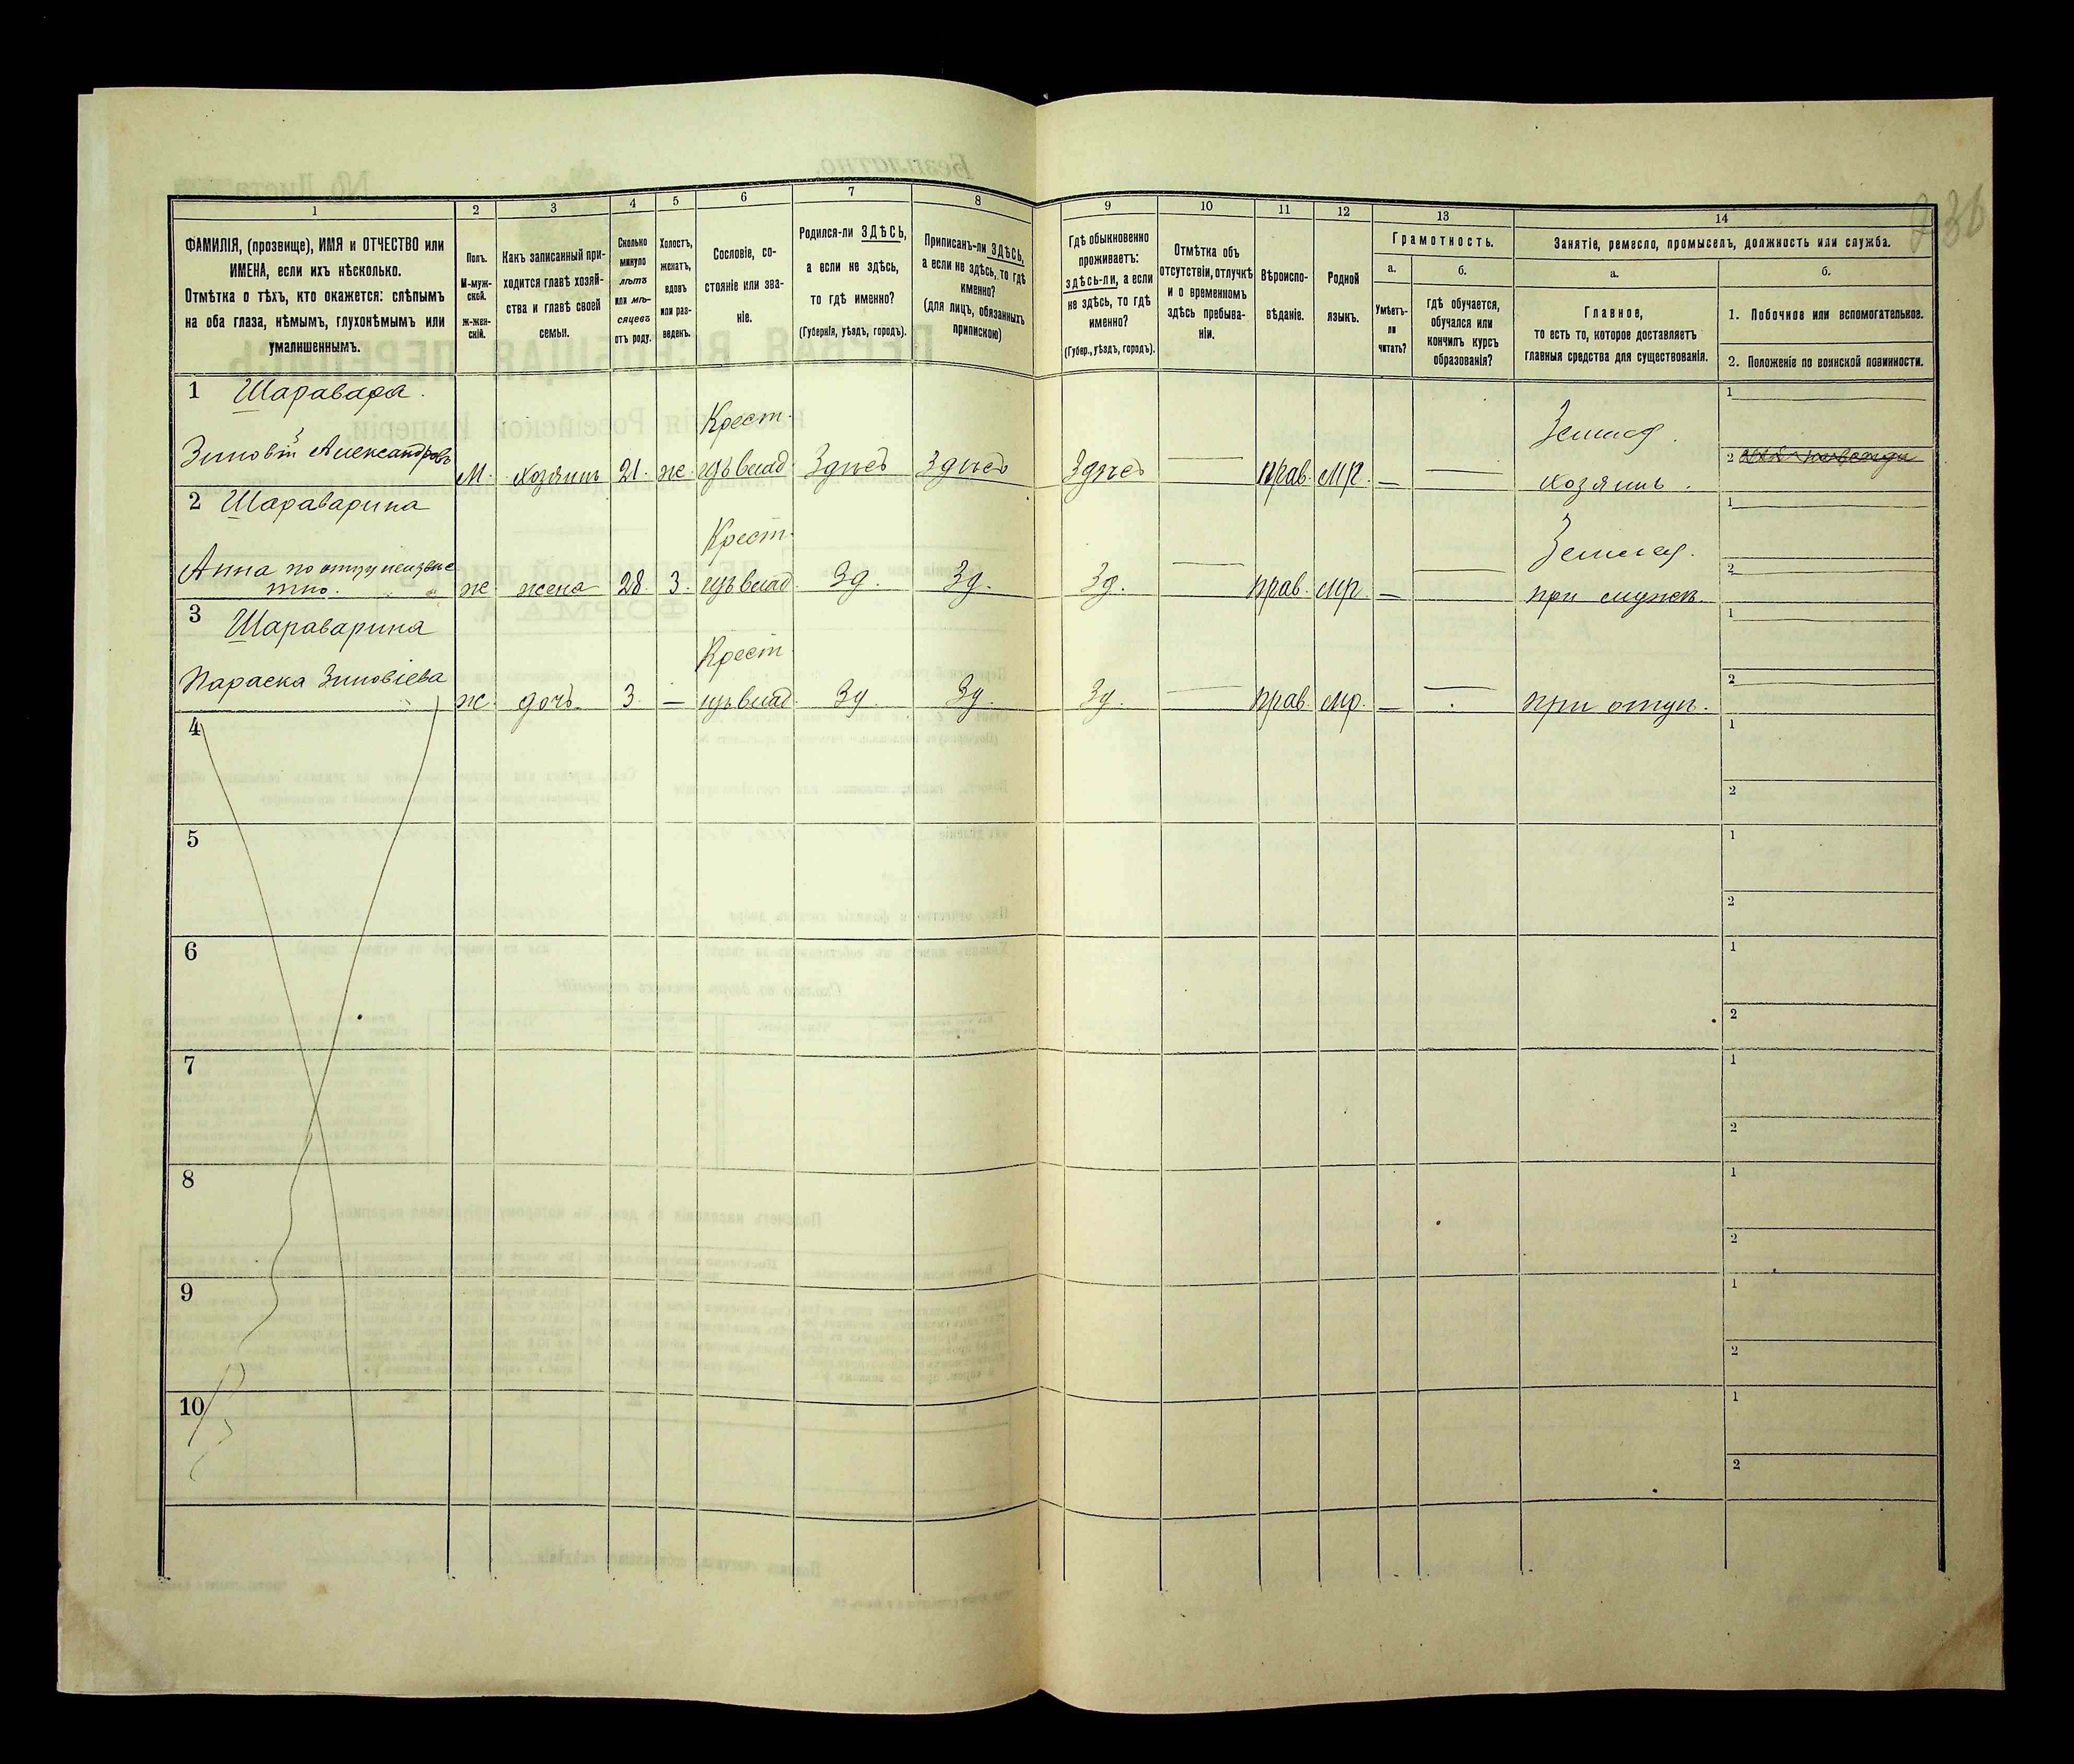 236
1
2
3
4
5
6
7
8
9
10
11
12
13
14
ФАМИЛІЯ, (прозвище), ИМЯ и ОТЧЕСТВО или
ИМЕНА, если ихъ нѣсколько.
Отмѣтка о тѣхъ, кто окажется: слѣпымъ
на оба глаза, нѣмымъ, глухонѣмымъ или
умалишеннымъ.
Полъ.
М-муж-
ской.
ж-жен-
скій.
Какъ записанный при-
ходится главѣ хозяй-
ства и главѣ своей
семьи.
Сколько
минуло
лѣтъ
или мѣ-
сяцевъ
отъ роду.
Холостъ,
женатъ,
вдовъ
или раз-
веденъ.
Сословіе, со-
стояніе или зва-
ніе.
Родился-ли ЗДѢСЬ,
а если не здѣсь,
то гдѣ именно?
(Губернія, уѣздъ, городъ).
Приписанъ-ли ЗДѢСЬ,
а если не здѣсь, то гдѣ
именно?
(для лицъ, обязанныхъ
припискою)
Гдѣ обыкновенно
проживаетъ:
здѣсь-ли, а если
не здѣсь, то гдѣ
именно?
(Губер., уѣздъ, городъ).
Отмѣтка объ
отсутствіи, отлучкѣ
и о временномъ
здѣсь пребыва-
ніи.
Вѣроиспо-
вѣданіе.
Родной
языкъ.
Грамотность.
а.
Умѣетъ-
ли
читать?
б.
гдѣ обучается,
обучался или
кончилъ курсъ
образованія?
Занятіе, ремесло, промыселъ, должность или служба.
а.
Главное,
то есть то, которое доставляетъ
главныя средства для существованія.
б.
1. Побочное или вспомогательное.
2. Положеніе по воинской повинности.
1 Шаравара.
Зиновій Александровъ
М. хозяинъ 21. ж.
Крест.
Здѣсь Здѣсь Здѣсь — прав. мр. — —
Землед.
хозяинъ.
1
2
2 Шараварина
Анна по отцу неизвѣс
тно.
ж. жена 28. З.
Крест.
Зд. Зд. Зд. — прав. мр. — —
Землед.
при мужѣ.
1
2
3 Шараварина
Параска Зиновіева
ж. дочь 3. —
Крест.
Зд. Зд. Зд. — прав. мр. — —
при отцѣ.
1
2
4
1
2
5
1
2
6
1
2
7
1
2
8
1
2
9
1
2
10
1
2